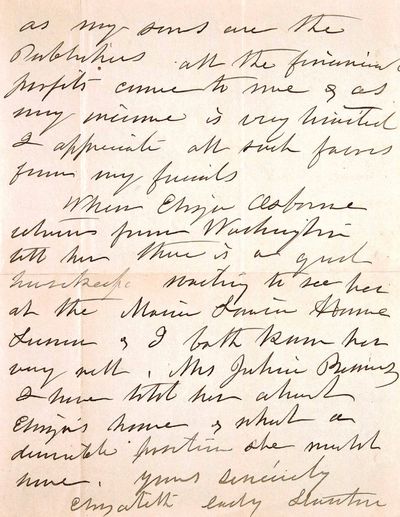 as my sons are the
Publishers all the financial
profits come to me & as
my income is very limited
I appreciate all such favors
from my friends
When Eliza Osborne
returns from Washington
tell her there is a good
housekeeper waiting to see her
at the Maria Louise Home
Susan & I both know her
very well, Mrs Julia
I have told her about
Eliza's home & what a
desirable position she might
have. Yours sincerely
Elizabeth Cady Stanton